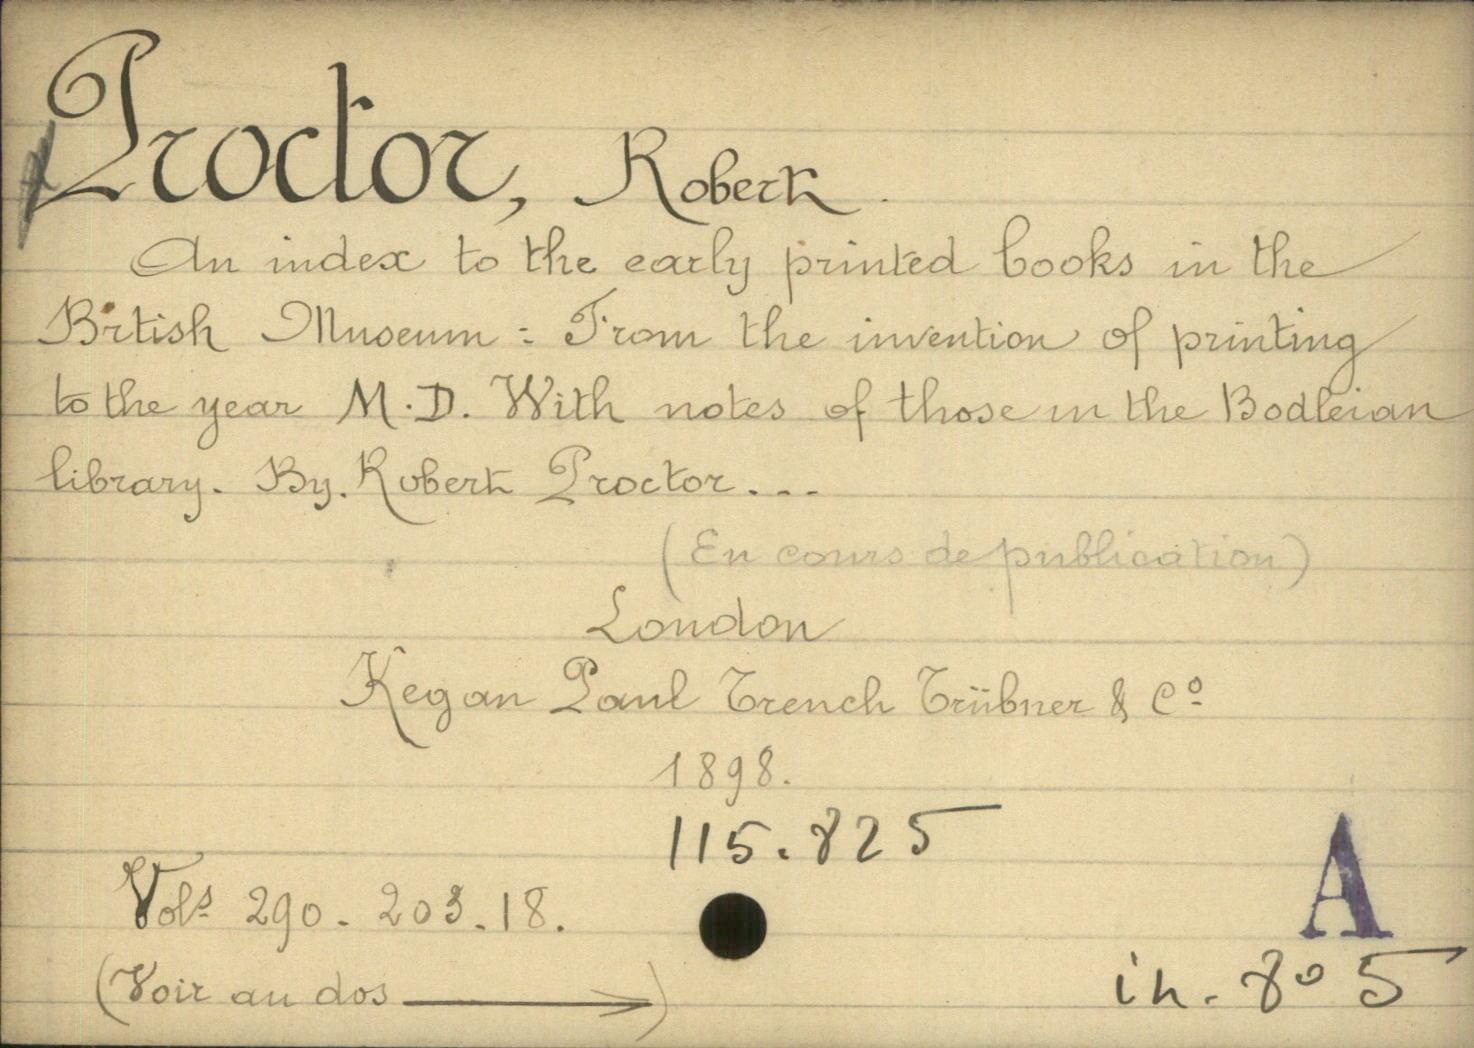 Proctor, Robert.
An index to the early printed books in the
British Museum : From the invention of printing
to the year M.D. With notes of those in the Bodleian
library. By. Robert Proctor...
(En cours de publication)
London
Kegan Paul Trench Trübner & Cº
1898.
115.825
A
Vols 290. 203. 18.
(Voir au dos →)
in. 8º 5